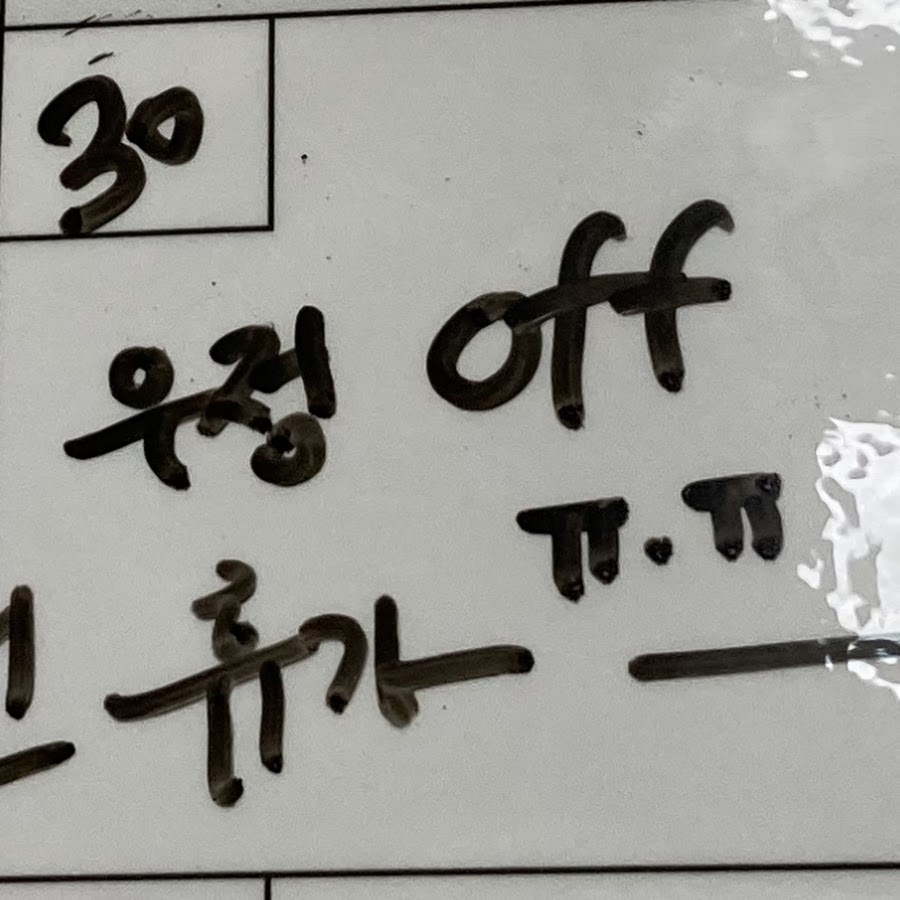 30
우정 off
ㅠ.ㅠ
휴가 —